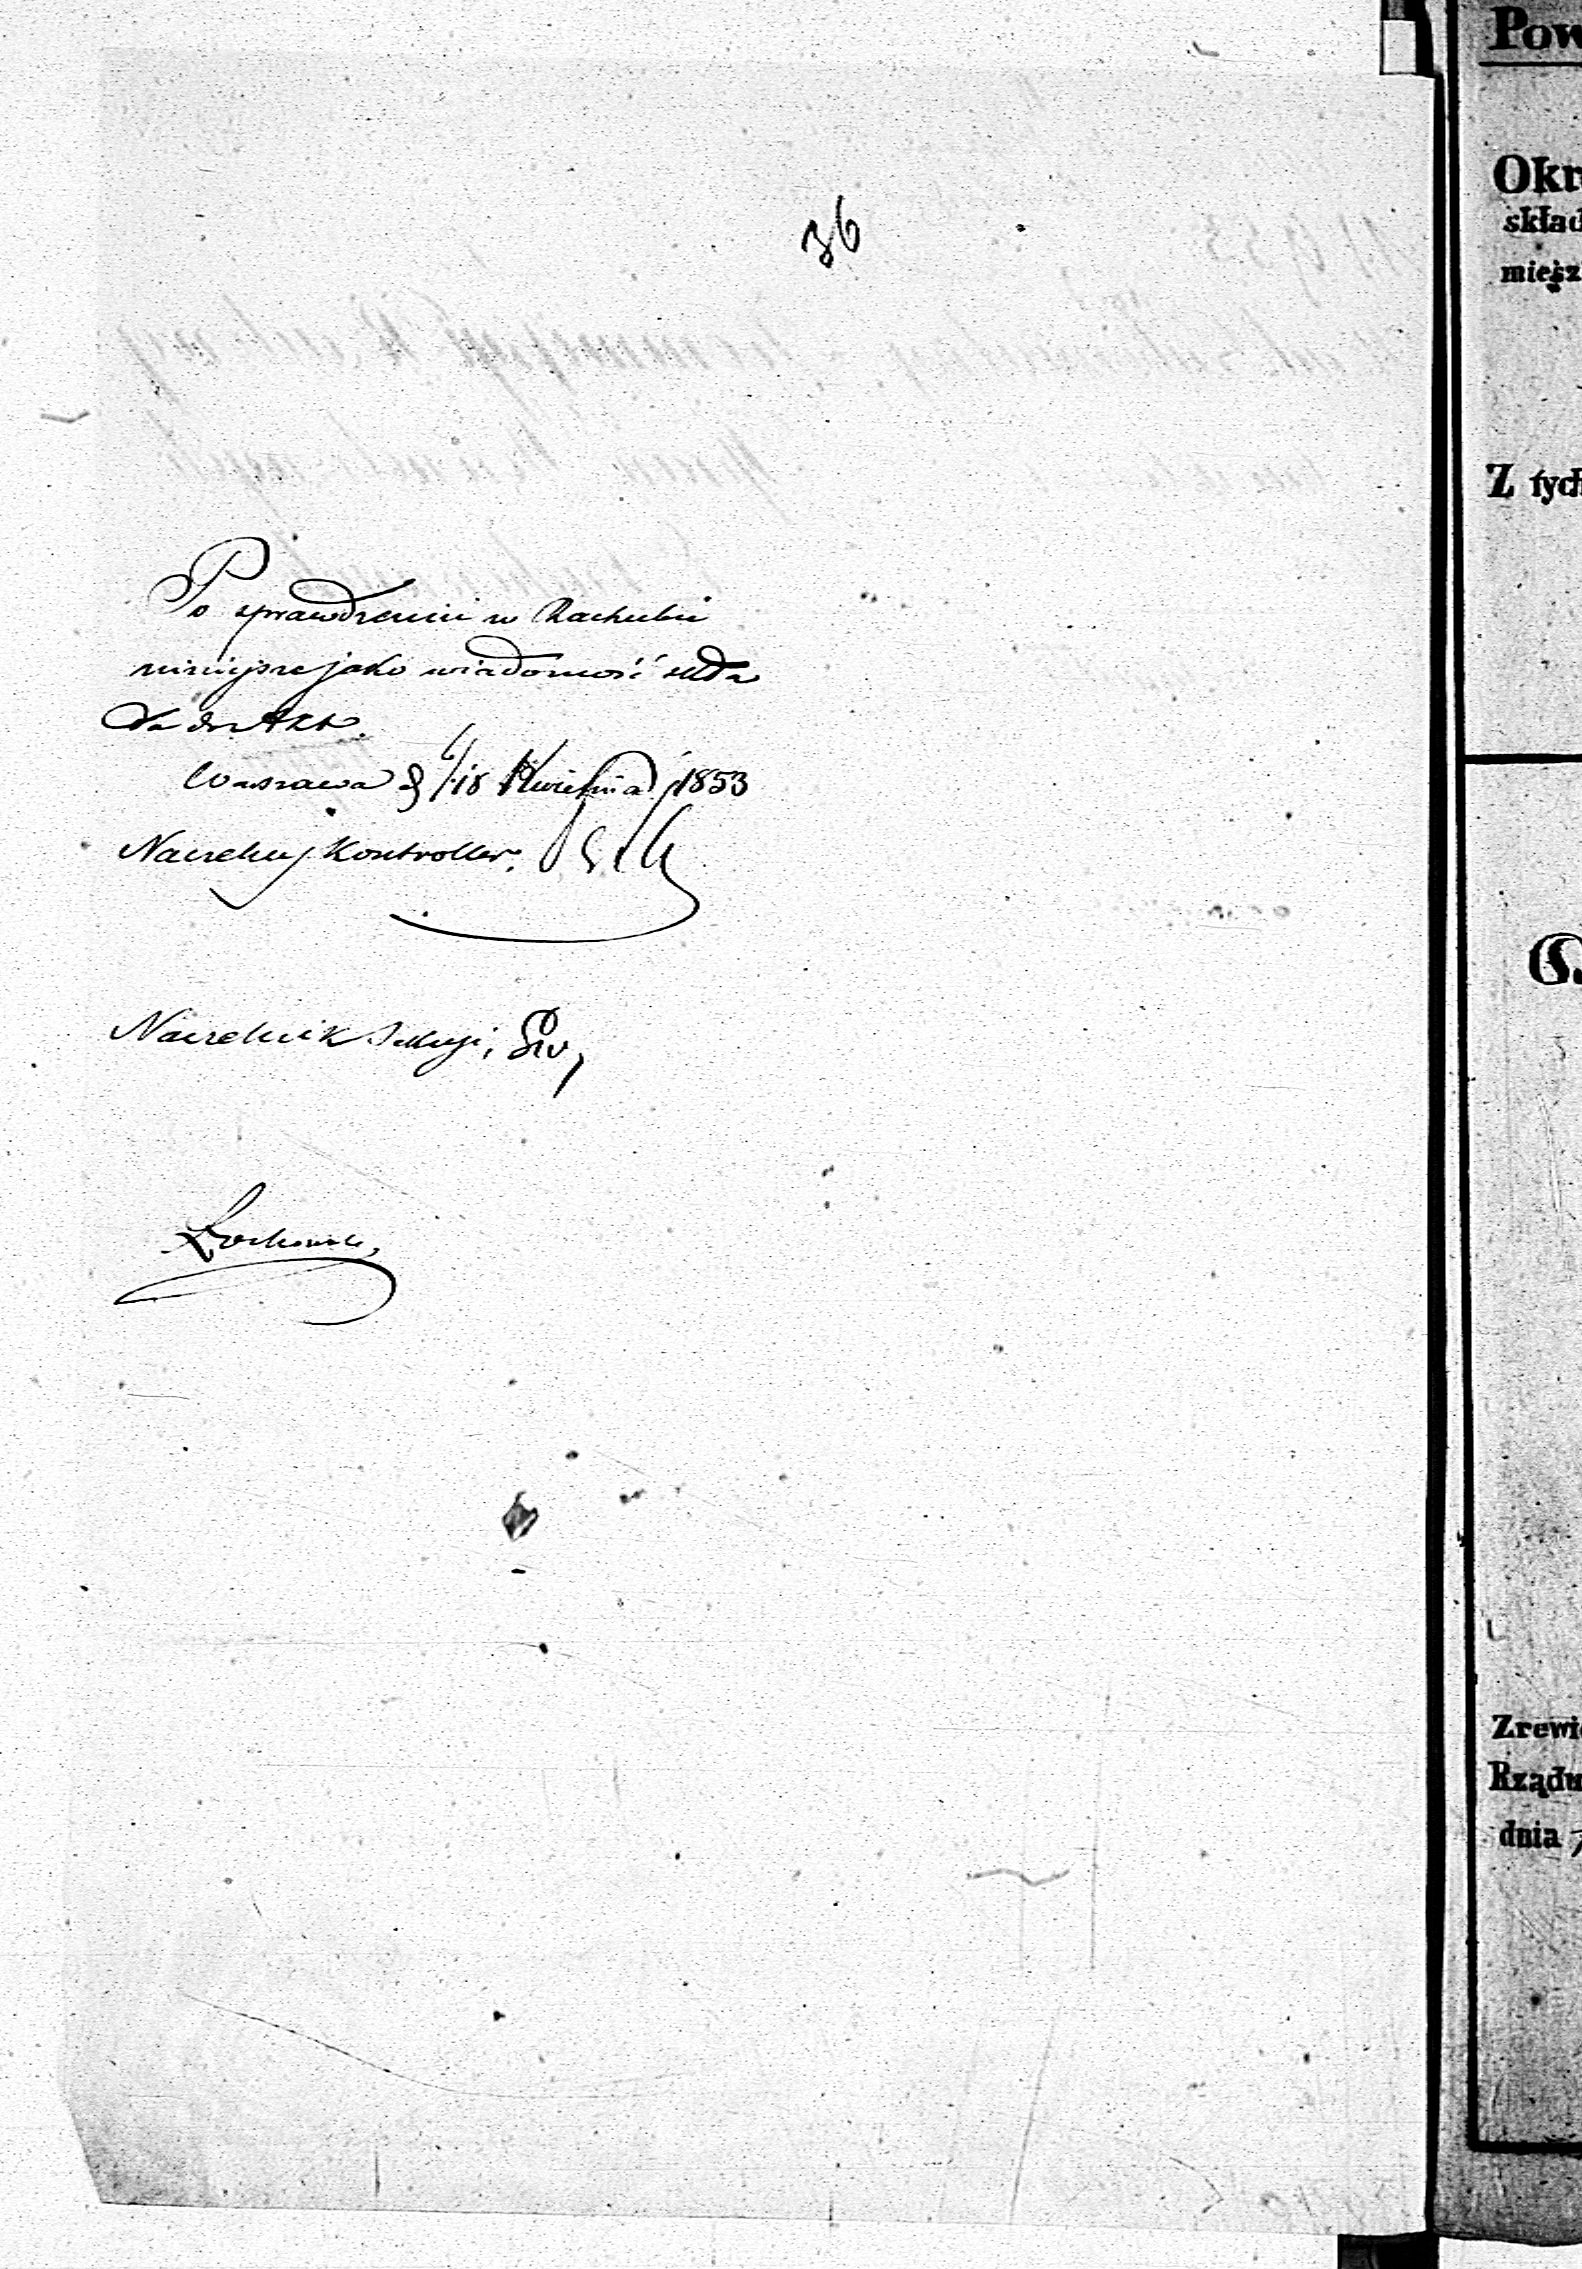 36
Po sprawdzeniu w Rachubie
niniejsze jako wiadomość
do Akt.
Warszawa d 6/18 Kwietnia 1853
Naczelny Kontroller.
Naczelnik Sekcyi,
Pow
Okr
skład
miesz
Z tych
Zrewi
Rządu
dnia